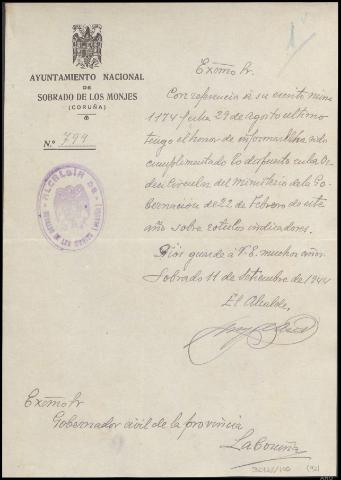 AYUNTAMIENTO NACIONAL
DE
SOBRADO DE LOS MONJES
(CORUÑA)
N.º 799
ALCALDIA DE
Exòmo Sr.
Con referencia á su escrito núm
1174 fecha 29 de agosto último
tengo el honor de informar sido
cumplimentado lo dispuesto en la Or-
den Circular del Ministerio de la Go-
bernación de 22 de Febrero de este
año sobre rotulos indicadores.
Dios guarde á V.E. muchos años.
Sobrado 11 de Setiembre de 1944
El Alcalde,
Exòmo Sr
Gobernador civil de la provincia
La Coruña